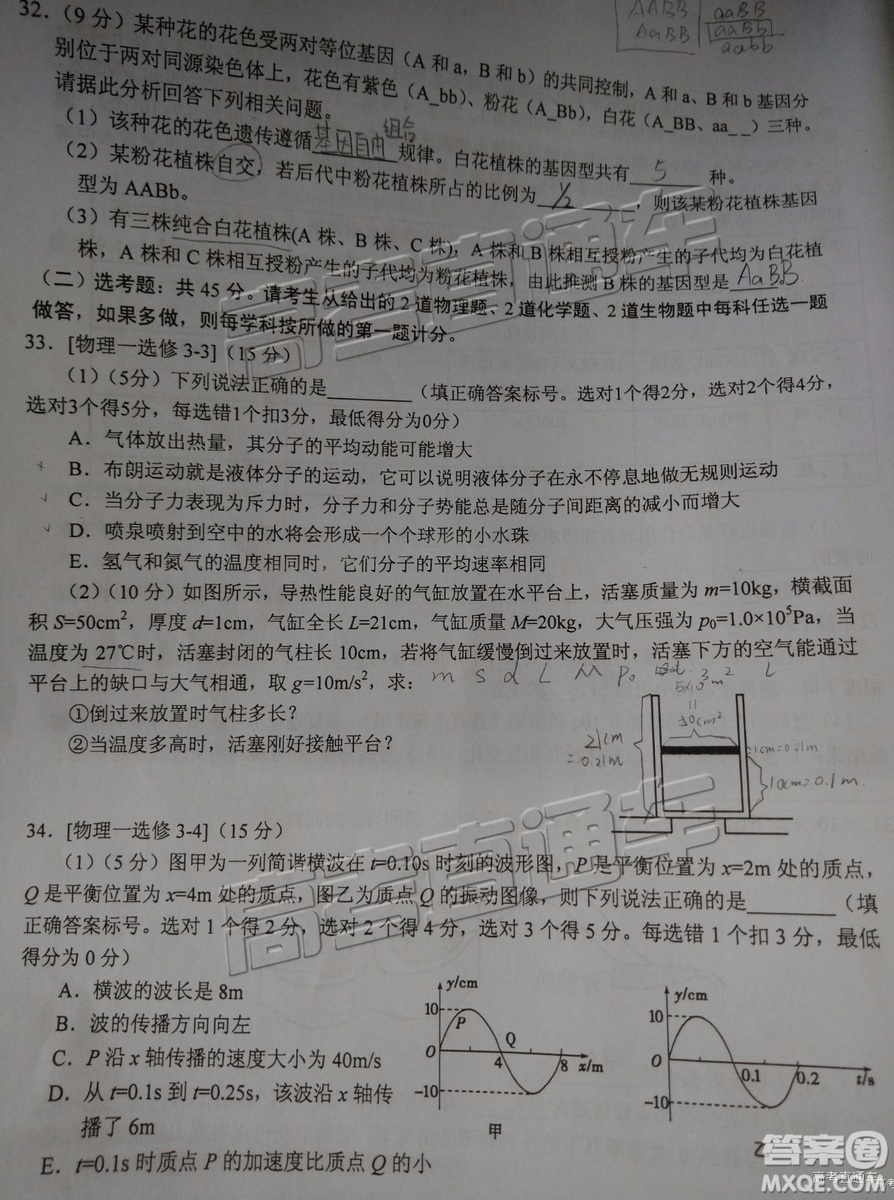 AABB aaBB
AaBB aaBb
aabb
32.（9 分）某种花的花色受两对等位基因（A 和 a，B 和 b）的共同控制，A 和 a、B 和 b 基因分
别位于两对同源染色体上，花色有紫色（A_bb）、粉花（A_Bb），白花（A_BB、aa_ _）三种。
请据此分析回答下列相关问题。
（1）该种花的花色遗传遵循基因自由组合规律。白花植株的基因型共有 5 种。
（2）某粉花植株自交，若后代中粉花植株所占的比例为 1/2 ，则该某粉花植株基因
型为 AABb。
（3）有三株纯合白花植株(A 株、B 株、C 株)，A 株和 B 株相互授粉产生的子代均为白花植
株，A 株和 C 株相互授粉产生的子代均为粉花植株，由此推测 B 株的基因型是 AaBB.
（二）选考题：共 45 分。请考生从给出的 2 道物理题、2 道化学题、2 道生物题中每科任选一题
做答，如果多做，则每学科按所做的第一题计分。
33．[物理一选修 3-3]（15 分）
（1）（5分）下列说法正确的是________（填正确答案标号。选对1个得2分，选对2个得4分，
选对3个得5分，每选错1个扣3分，最低得分为0分）
A．气体放出热量，其分子的平均动能可能增大
B．布朗运动就是液体分子的运动，它可以说明液体分子在永不停息地做无规则运动
C．当分子力表现为斥力时，分子力和分子势能总是随分子间距离的减小而增大
D．喷泉喷射到空中的水将会形成一个个球形的小水珠
E．氢气和氮气的温度相同时，它们分子的平均速率相同
（2）（10 分）如图所示，导热性能良好的气缸放置在水平台上，活塞质量为 m=10kg，横截面
积 S=50cm²，厚度 d=1cm，气缸全长 L=21cm，气缸质量 M=20kg，大气压强为 p₀=1.0×10⁵Pa，当
温度为 27℃时，活塞封闭的气柱长 10cm，若将气缸缓慢倒过来放置时，活塞下方的空气能通过
平台上的缺口与大气相通，取 g=10m/s²，求： m s d L M p₀ L
①倒过来放置时气柱多长？
②当温度多高时，活塞刚好接触平台？
50cm²
21cm
=0.21m
1cm=0.01m
10cm=0.1m
34．[物理一选修 3-4]（15 分）
（1）（5 分）图甲为一列简谐横波在 t=0.10s 时刻的波形图，P 是平衡位置为 x=2m 处的质点，
Q 是平衡位置为 x=4m 处的质点，图乙为质点 Q 的振动图像，则下列说法正确的是________（填
正确答案标号。选对 1 个得 2 分，选对 2 个得 4 分，选对 3 个得 5 分。每选错 1 个扣 3 分，最低
得分为 0 分）
A．横波的波长是 8m
B．波的传播方向向左
C．P 沿 x 轴传播的速度大小为 40m/s
D．从 t=0.1s 到 t=0.25s，该波沿 x 轴传
播了 6m
E．t=0.1s 时质点 P 的加速度比质点 Q 的小
y/cm
10
P
Q
O
4
8
x/m
-10
甲
y/cm
10
O
0.1
0.2
t/s
-10
乙
高考直通车
高考直通车
答案圈
高考直通车
MXQE.COM